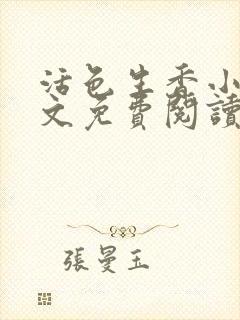 活色生香小
文免費閱讀
張曼玉